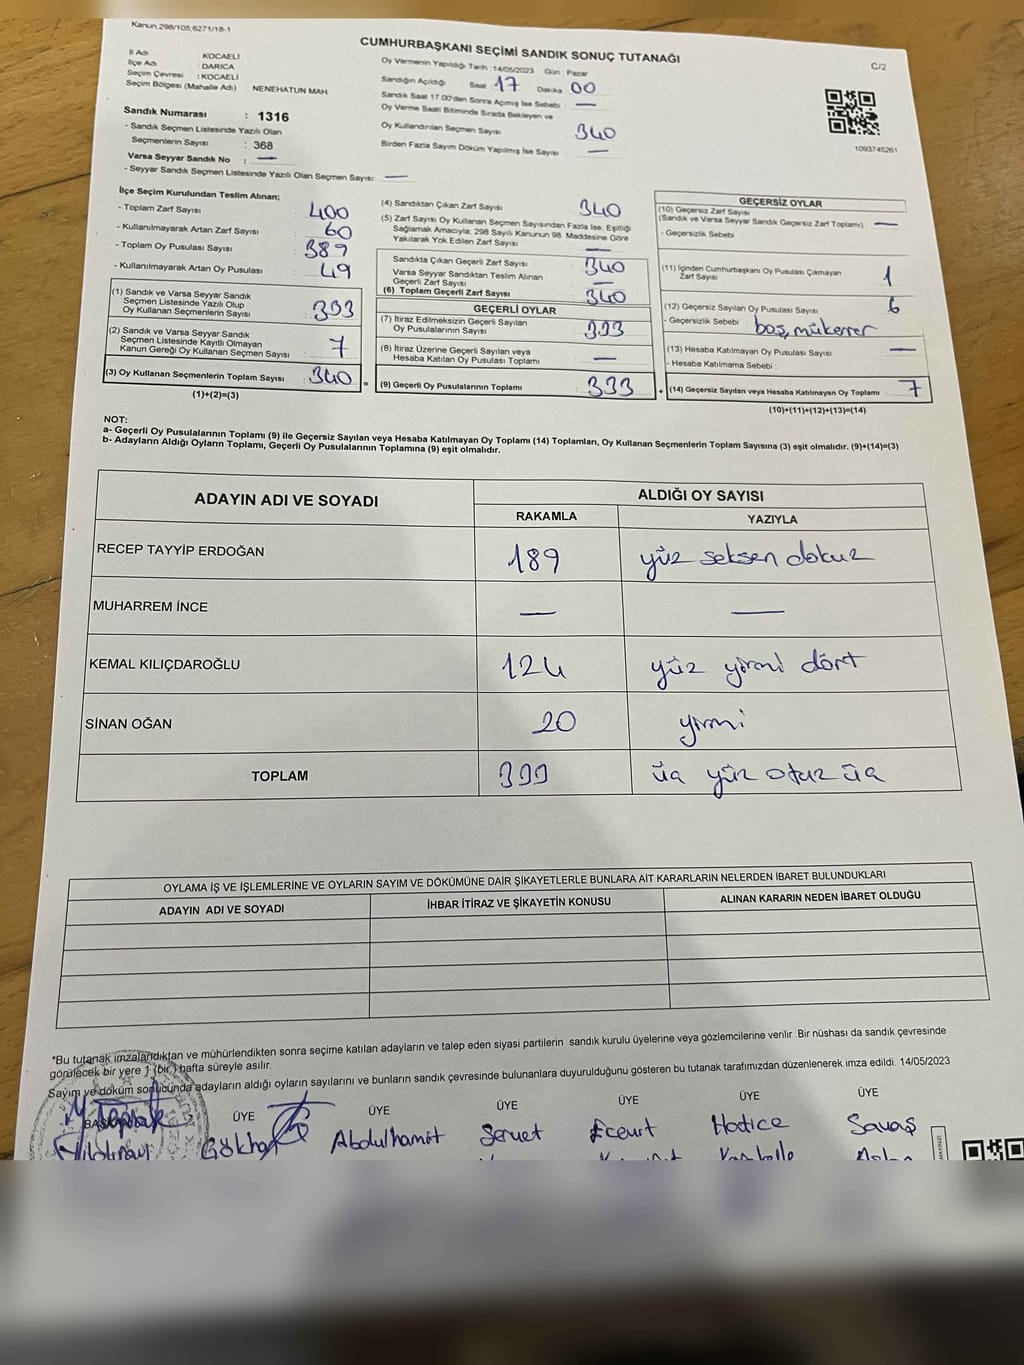 Kanun,298/105,6271/18-1
CUMHURBAŞKANI SEÇİMİ SANDIK SONUÇ TUTANAĞI
C/2
İl Adı : KOCAELİ
İlçe Adı : DARICA
Seçim Çevresi : KOCAELİ
Seçim Bölgesi (Mahalle Adı) NENEHATUN MAH.
Sandık Numarası : 1316
- Sandık Seçmen Listesinde Yazılı Olan
Seçmenlerin Sayısı : 368
Varsa Seyyar Sandık No : —
- Seyyar Sandık Seçmen Listesinde Yazılı Olan Seçmen Sayısı: —
Oy Vermenin Yapıldığı Tarih :14/05/2023 Gün : Pazar
Sandığın Açıldığı Saat 17 Dakika 00
Sandık Saat 17:00'den Sonra Açımış İse Sebebi : —
Oy Verme Saati Bitiminde Sırada Bekleyen ve
Oy Kullandırılan Seçmen Sayısı 340
Birden Fazla Sayım Döküm Yapılmış İse Sayısı —
1093745261
İlçe Seçim Kurulundan Teslim Alınan;
- Toplam Zarf Sayısı : 400
- Kullanılmayarak Artan Zarf Sayısı : 60
- Toplam Oy Pusulası Sayısı : 389
- Kullanılmayarak Artan Oy Pusulası : 49
(1) Sandık ve Varsa Seyyar Sandık
Seçmen Listesinde Yazılı Olup
Oy Kullanan Seçmenlerin Sayısı : 333
(2) Sandık ve Varsa Seyyar Sandık
Seçmen Listesinde Kayıtlı Olmayan
Kanun Gereği Oy Kullanan Seçmen Sayısı : 7
(3) Oy Kullanan Seçmenlerin Toplam Sayısı : 340
(1)+(2)=(3)
(4) Sandıktan Çıkan Zarf Sayısı 340
(5) Zarf Sayısı Oy Kullanan Seçmen Sayısından Fazla İse, Eşitliği
Sağlamak Amacıyla; 298 Sayılı Kanunun 98. Maddesine Göre
Yakılarak Yok Edilen Zarf Sayısı —
Sandıkta Çıkan Geçerli Zarf Sayısı 340
Varsa Seyyar Sandıktan Teslim Alınan
Geçerli Zarf Sayısı —
(6) Toplam Geçerli Zarf Sayısı 340
GEÇERLİ OYLAR
(7) İtiraz Edilmeksizin Geçerli Sayılan
Oy Pusulalarının Sayısı 333
(8) İtiraz Üzerine Geçerli Sayılan veya
Hesaba Katılan Oy Pusulası Toplamı —
= (9) Geçerli Oy Pusulalarının Toplamı 333
GEÇERSİZ OYLAR
(10) Geçersiz Zarf Sayısı
(Sandık ve Varsa Seyyar Sandık Geçersiz Zarf Toplamı) —
- Geçersizlik Sebebi
(11) İçinden Cumhurbaşkanı Oy Pusulası Çıkmayan
Zarf Sayısı 1
(12) Geçersiz Sayılan Oy Pusulası Sayısı : 6
- Geçersizlik Sebebi : boş, mükerrer
(13) Hesaba Katılmayan Oy Pusulası Sayısı —
- Hesaba Katılmama Sebebi :
+ (14) Geçersiz Sayılan veya Hesaba Katılmayan Oy Toplamı : 7
(10)+(11)+(12)+(13)=(14)
NOT:
a- Geçerli Oy Pusulalarının Toplamı (9) ile Geçersiz Sayılan veya Hesaba Katılmayan Oy Toplamı (14) Toplamları, Oy Kullanan Seçmenlerin Toplam Sayısına (3) eşit olmalıdır. (9)+(14)=(3)
b- Adayların Aldığı Oyların Toplamı, Geçerli Oy Pusulalarının Toplamına (9) eşit olmalıdır.
ADAYIN ADI VE SOYADI ALDIĞI OY SAYISI
RAKAMLA YAZIYLA
RECEP TAYYİP ERDOĞAN 189 yüz seksen dokuz
MUHARREM İNCE — —
KEMAL KILIÇDAROĞLU 124 yüz yirmi dört
SİNAN OĞAN 20 yirmi
TOPLAM 333 üç yüz otuz üç
OYLAMA İŞ VE İŞLEMLERİNE VE OYLARIN SAYIM VE DÖKÜMÜNE DAİR ŞİKAYETLERLE BUNLARA AİT KARARLARIN NELERDEN İBARET BULUNDUKLARI
ADAYIN ADI VE SOYADI İHBAR İTİRAZ VE ŞİKAYETİN KONUSU ALINAN KARARIN NEDEN İBARET OLDUĞU
*Bu tutanak imzalandıktan ve mühürlendikten sonra seçime katılan adayların ve talep eden siyasi partilerin sandık kurulu üyelerine veya gözlemcilerine verilir. Bir nüshası da sandık çevresinde
görülecek bir yere 1 (bir) hafta süreyle asılır.
Sayım ve döküm sonucunda adayların aldığı oyların sayılarını ve bunların sandık çevresinde bulunanlara duyurulduğunu gösteren bu tutanak tarafımızdan düzenlenerek imza edildi. 14/05/2023
ÜYE ÜYE ÜYE ÜYE ÜYE ÜYE
Toprak Gökhan Abdulhamit Servet Ecevit Hatice Savaş